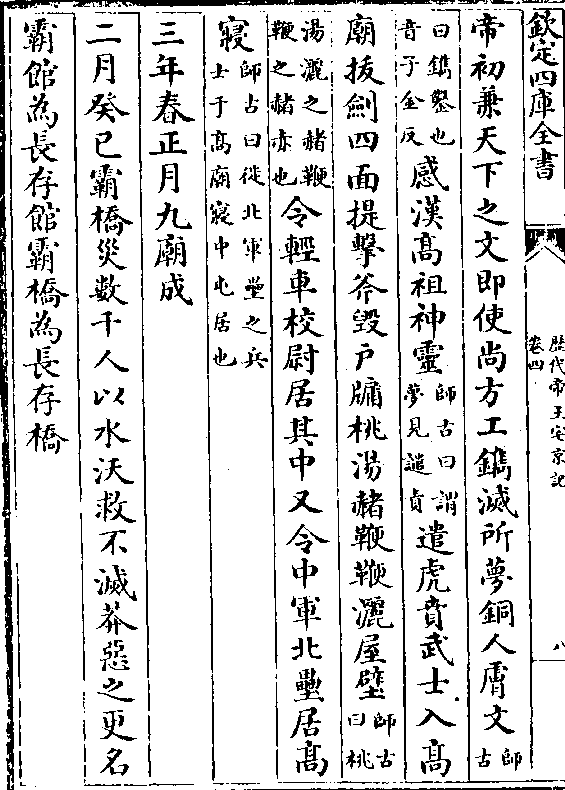 欽定四庫全書
歷代帝王宅京記
卷四
八
帝初兼天下之文即使尚方工鐫滅所夢銅人膺文師古
曰鐫鑿也音子全反感漢高祖神靈師古曰謂夢見譴責遣虎賁武士入高
廟拔劍四面提擊斧毀戶牖桃湯赭鞭鞭灑屋壁師古曰桃
湯灑之赭鞭鞭之赭赤也令輕車校尉居其中又令中軍北壘居高
寢師古曰徙北軍壘之兵士于髙廟寢中屯居也
三年春正月九廟成
二月癸巳霸橋災數千人以水沃救不滅莽惡之更名
霸館為長存館霸橋為長存橋